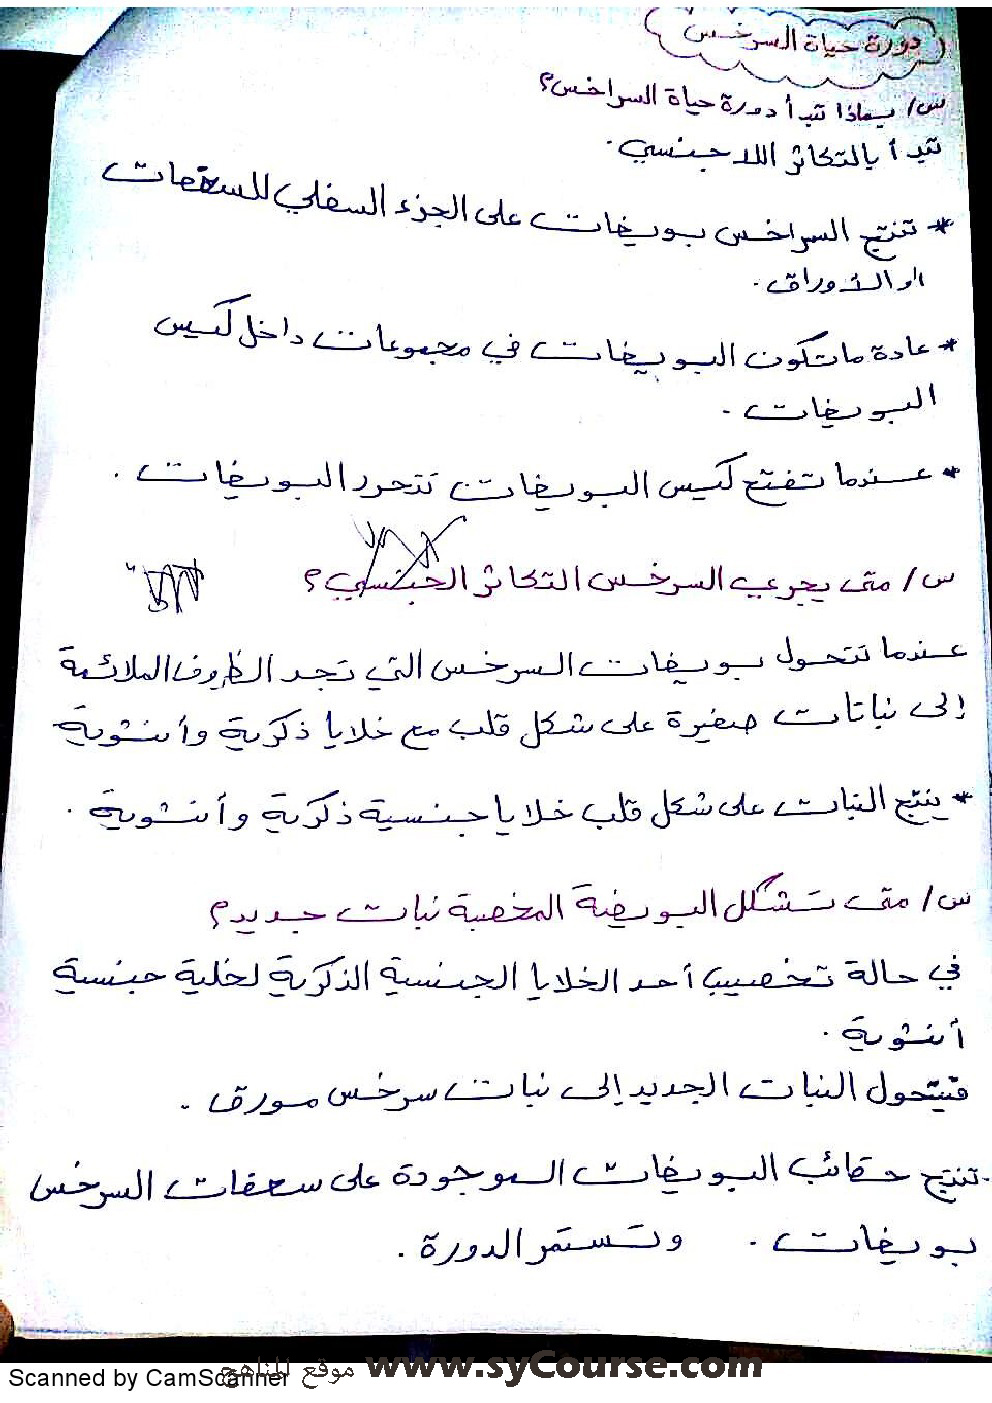 دورة حياة السرخس
س/ بماذا تبدأ دورة حياة السراخس؟
تبدأ بالتكاثر اللاجنسي.
* تنتج السراخس بويغات على الجزء السفلي للسعفات
او الأوراق.
* عادة ماتتكون البويغات في مجموعات داخل كيس
البويغات.
* عندما تفتح كيس البويغات تتحرر البويغات.
س/ متى يجري السرخس التكاثر الجنسي؟
عندما تتحول بويغات السرخس التي تجد الظروف الملائمة
إلى نباتات صغيرة على شكل قلب مع خلايا ذكرية وأنثوية
* ينتج النبات على شكل قلب خلايا جنسية ذكرية وأنثوية.
س/ متى تشكل البويضة المخصبة نبات جديد؟
في حالة تخصيب أحد الخلايا الجنسية الذكرية لخلية جنسية
أنثوية.
فيتحول النبات الجديد إلى نبات سرخس مورق.
تنتج حقائب البويغات الموجودة على سعفات السرخس
بويغات. وتستمر الدورة.
موقع المناهج www.syCourse.com
Scanned by CamScanner